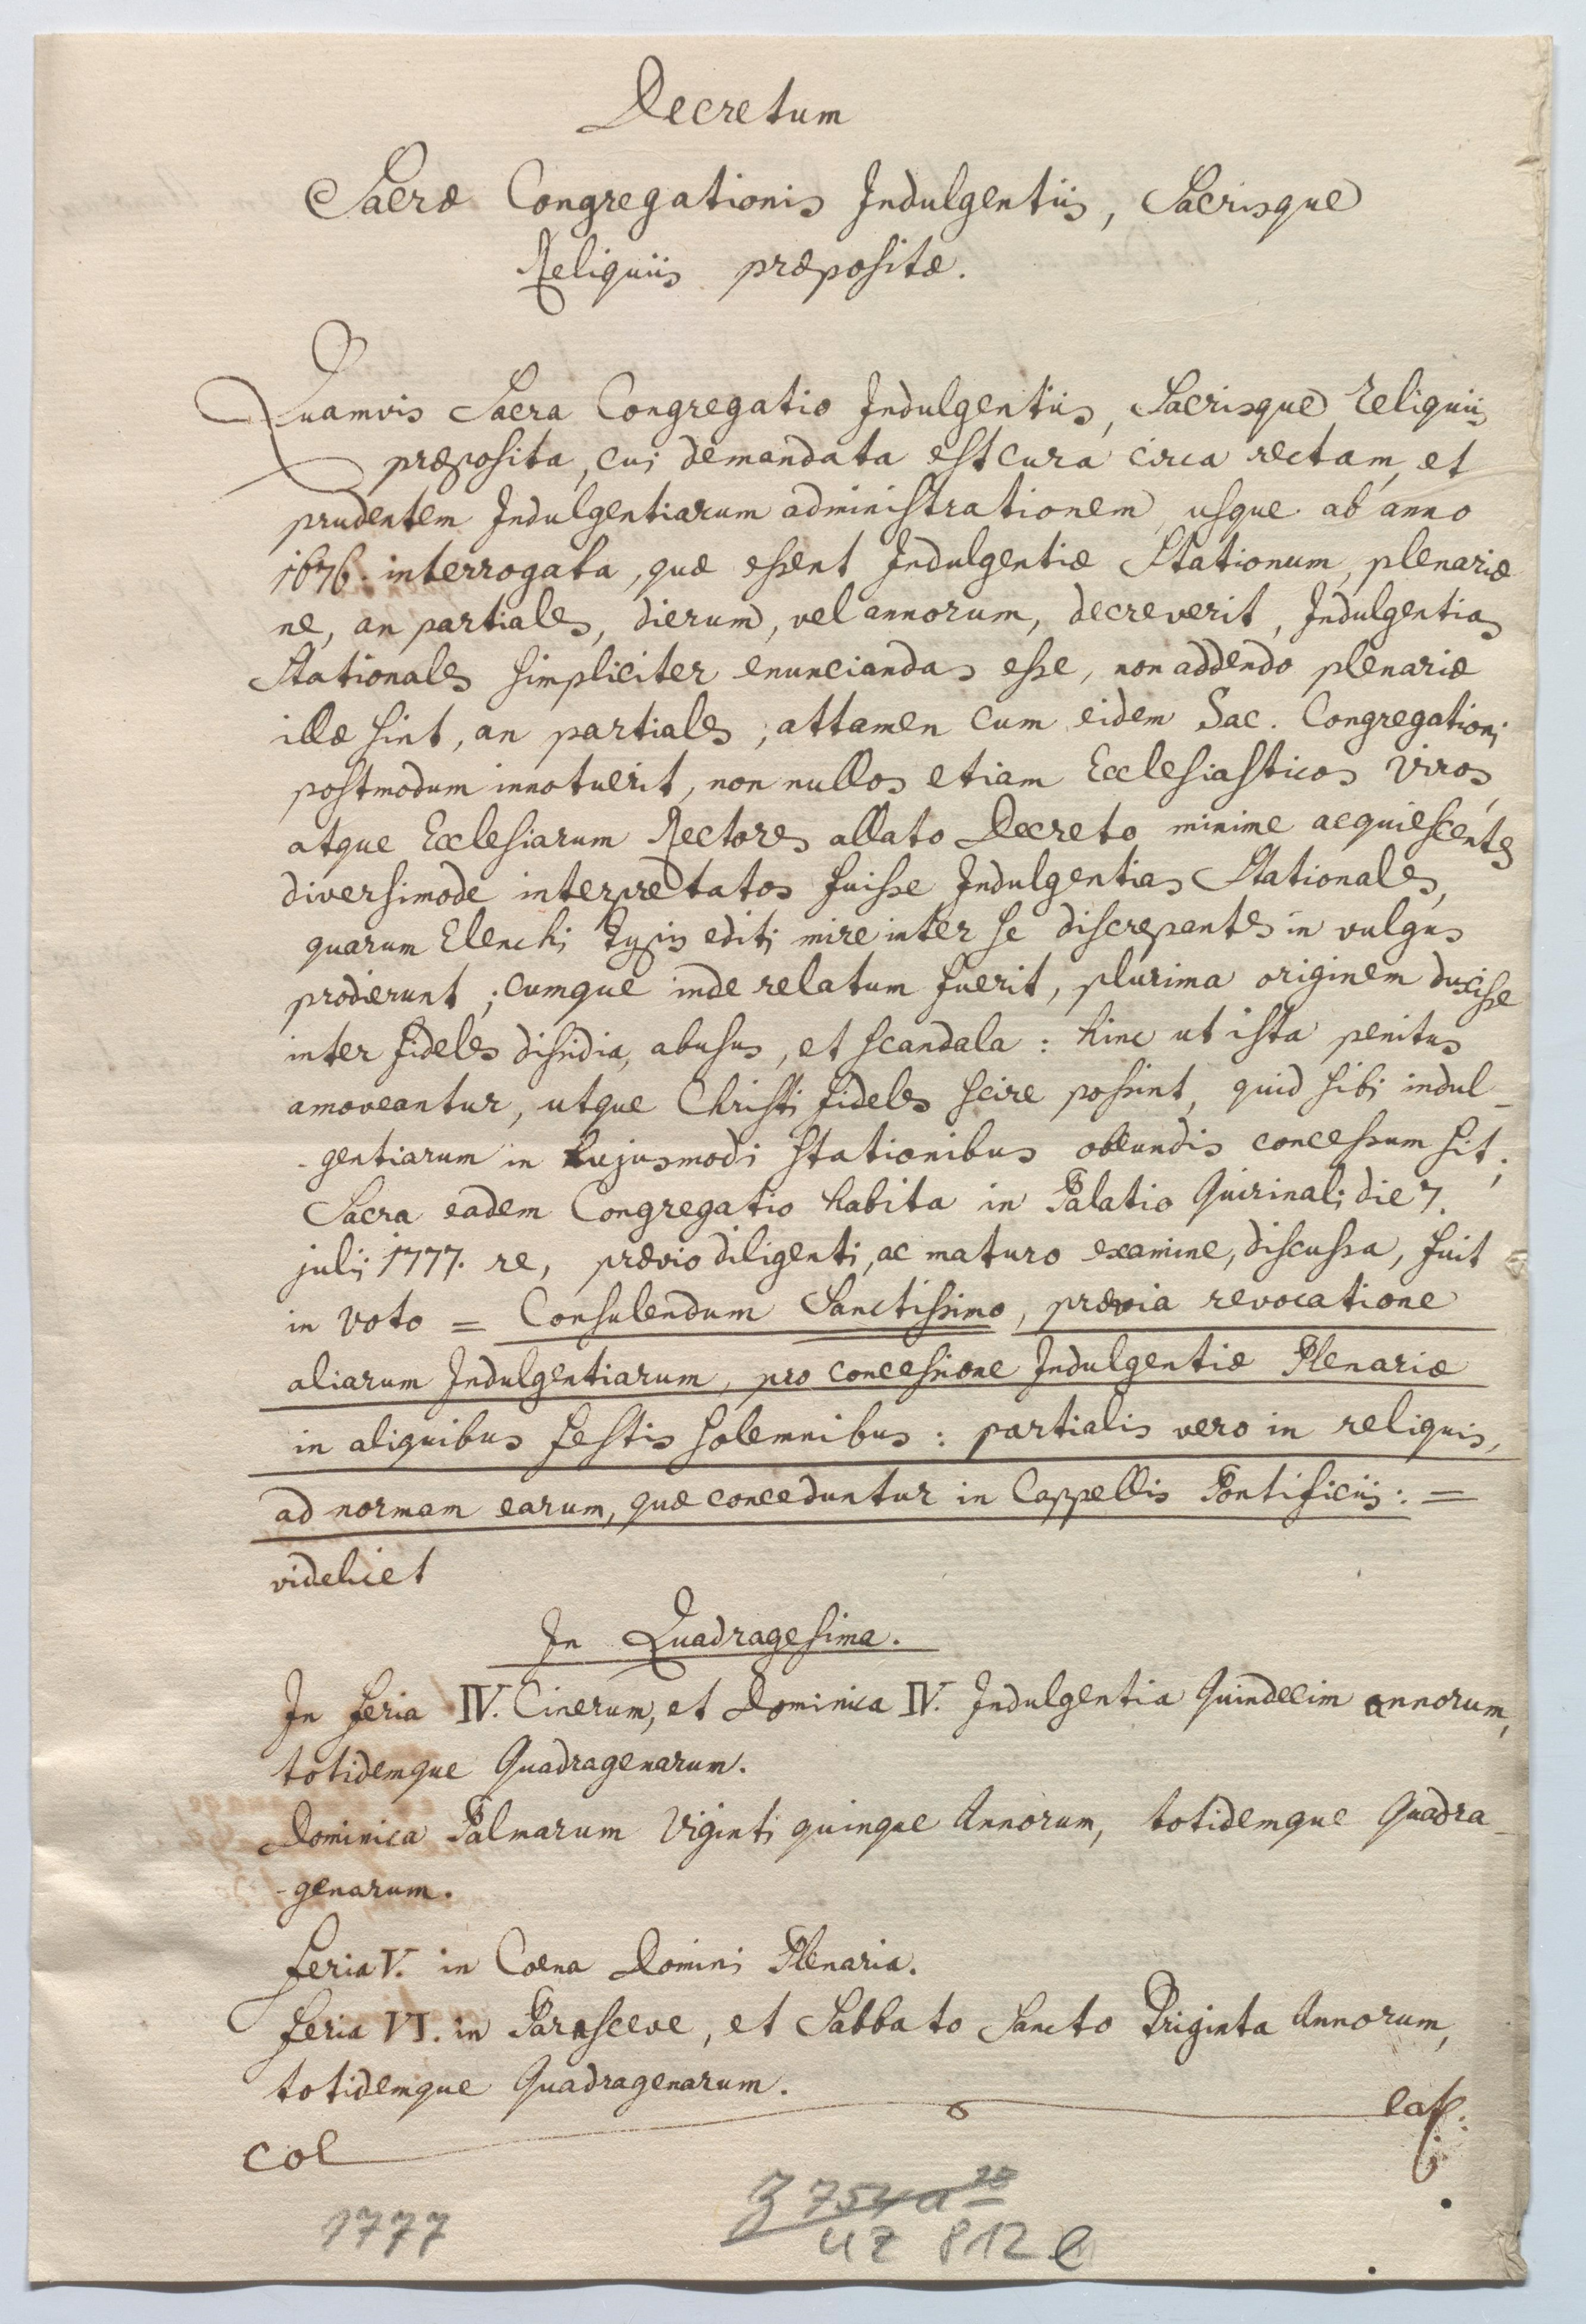 Decretum
Sacræ Congregationis Indulgentiis, Sacrisque
Reliquiis præpositæ.
Quamvis Sacra Congregatio Indulgentiis, Sacrisque Reliquiis
præposita, cui demandata est cura circa rectam, et
prudentem Indulgentiarum administrationem, usque ab anno
1676. interrogata, quæ essent Indulgentiæ Stationum, plenariæ
ne, an partiales, dierum, vel annorum, decreverit, Indulgentias
Stationales simpliciter enunciandas esse, non addendo plenariæ
illæ sint, an partiales; attamen cum eidem Sac. Congregationi
postmodum innotuerit, non nullos etiam Ecclesiasticos Viros,
atque Ecclesiarum Rectores allato Decreto minime acquiescentes
diversimode interprætatos fuisse Indulgentias Stationales,
quarum Elenchi Typis editi mire inter se discrepantes in vulgus
prodierunt; cumque inde relatum fuerit, plurima originem duxisse
inter fideles dissidia, abusus, et scandala: hinc ut ista penitus
amoveantur, utque Christi fideles scire possint, quid sibi indul-
-gentiarum in hujusmodi stationibus obeundis concessum sit;
Sacra eadem Congregatio habita in Palatio Quirinali die 7.
julii 1777. re, prævio diligenti, ac maturo examine, discussa, fuit
in voto = Consulendum Sanctissimo, prævia revocatione
aliarum Indulgentiarum, pro concessione Indulgentiæ Plenariæ
in aliquibus festis solemnibus: partialis vero in reliquis,
ad normam earum, quæ conceduntur in Cappellis Pontificiis: =
videlicet
In Quadragesima.
In feria IV. Cinerum, et Dominica IV. Indulgentia Quindecim annorum,
totidemque Quadragenarum.
Dominica Palmarum Viginti quinque Annorum, totidemque Quadra-
-genarum.
Feria V. in Coena Domini Plenaria.
Feria VI. in Parasceve, et Sabbato Sancto Triginta Annorum,
totidemque Quadragenarum.
col
1777
3 754 a 20
UZ 812 e